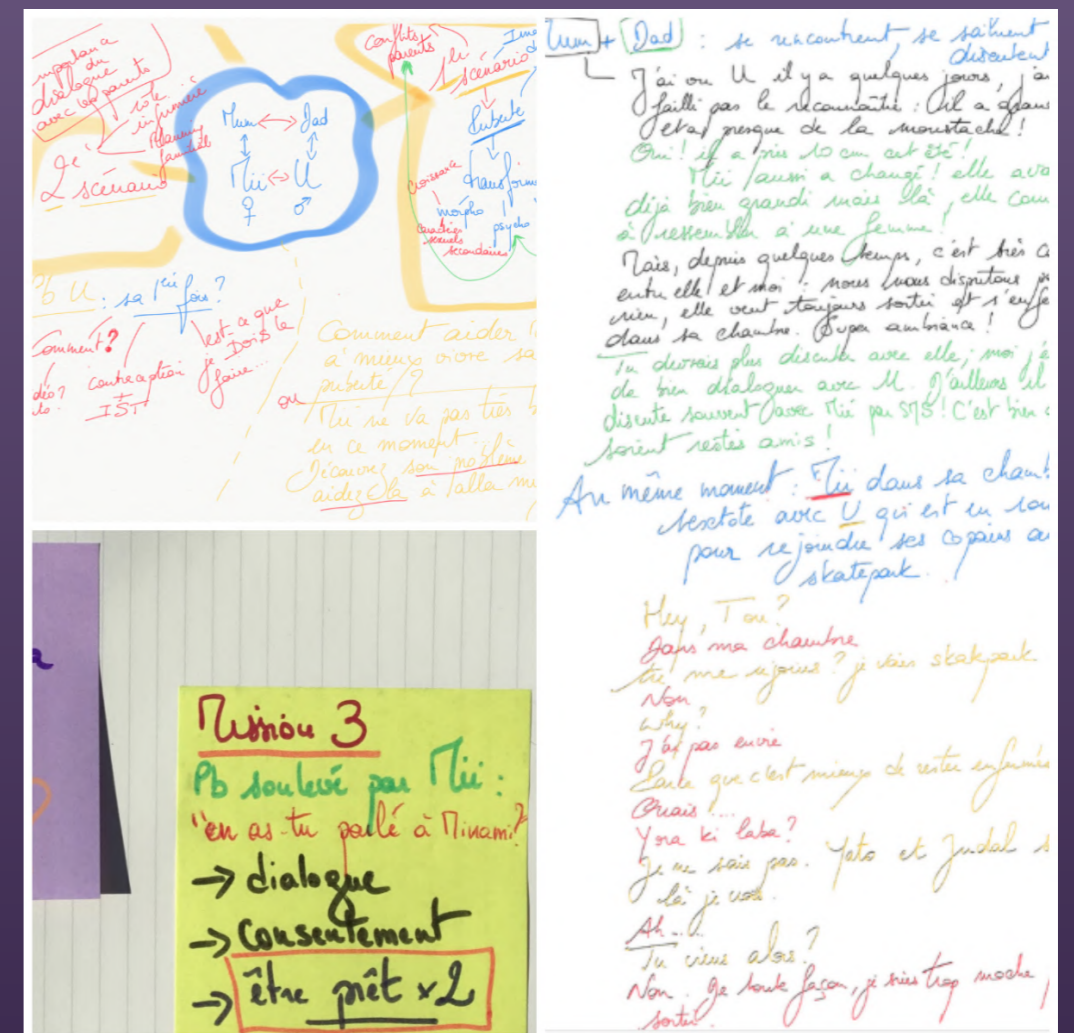 importance
du
dialogue
avec les parents
rôle
infirmière
Planning
familial
2e
scénario
Mum ↔ Dad
Mii ↔ U
♀ ♂
Conflits
parents
1er
scénario
Puberté
croissance
morpho
psycho
caractères
sexuels
secondaires
Pb U : sa 1ère fois ?
Comment ?
contraception
+
IST
est-ce que
je DOIS le
faire...
ou
Comment aider
à mieux vivre sa
puberté ?
Mii ne va pas très b
en ce moment...
Découvrez son problème
aidez la à aller
Mum + Dad : se rencontrent, se saluent
discutent
J'ai vu U il y a quelques jours, j'ai
failli pas le reconnaître : il a gran
et a presque de la moustache !
Oui ! il a pris 10 cm cet été !
Mii aussi a changé ! elle ava
déjà bien grandi mais là, elle com
à ressembler à une femme !
Mais, depuis quelques temps, c'est très c
entre elle et moi : nous nous disputons
rien, elle veut toujours sortir et s'enfe
dans sa chambre. Super ambiance !
Tu devrais plus discuter avec elle ; moi j'e
de bien dialoguer avec U. D'ailleurs il
discute souvent avec Mii par SMS ! C'est bien
soient restés amis !
Au même moment : Mii dans sa chamb
textote avec U qui est en rou
pour rejoindre ses copains au
skatepark.
Hey, T ou ?
Dans ma chambre
tu me rejoins ? je vais skatepark
Non
why ?
J'ai pas envie
Parce que c'est mieux de rester enfermée
Ouais ....
Yora ki laba ?
Je ne sais pas. Yato et Judal s
là je crois.
Ah ....
Tu viens alors ?
Non. De toute façon, je suis trop moche
sortir.
Mission 3
Pb soulevé par Mii :
"en as-tu parlé à Minami ?"
→ dialogue
→ Consentement
→ être prêt x2